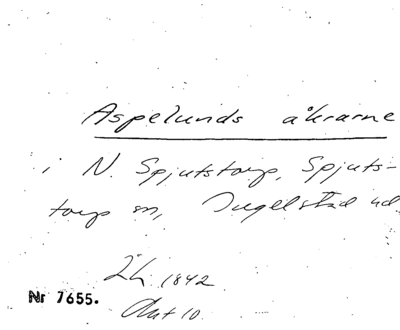 Aspelunds åkrarne
i N. Spjutstorp, Spjuts-
torp sn, Ingelstad hd.
1842
Nr 7655.
Akt 10